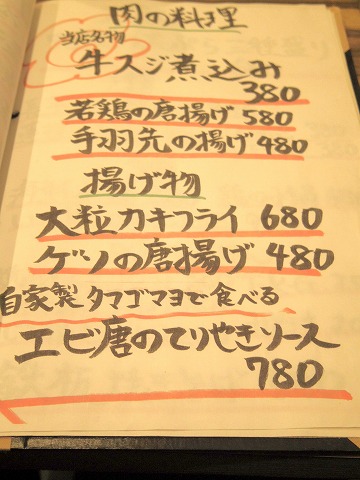 肉の料理
当店名物
牛スジ煮込み
380
若鶏の唐揚げ 580
手羽先の揚げ 480
揚げ物
大粒カキフライ 680
ゲソの唐揚げ 480
自家製タマゴマヨで食べる
エビ唐のてりやきソース
780